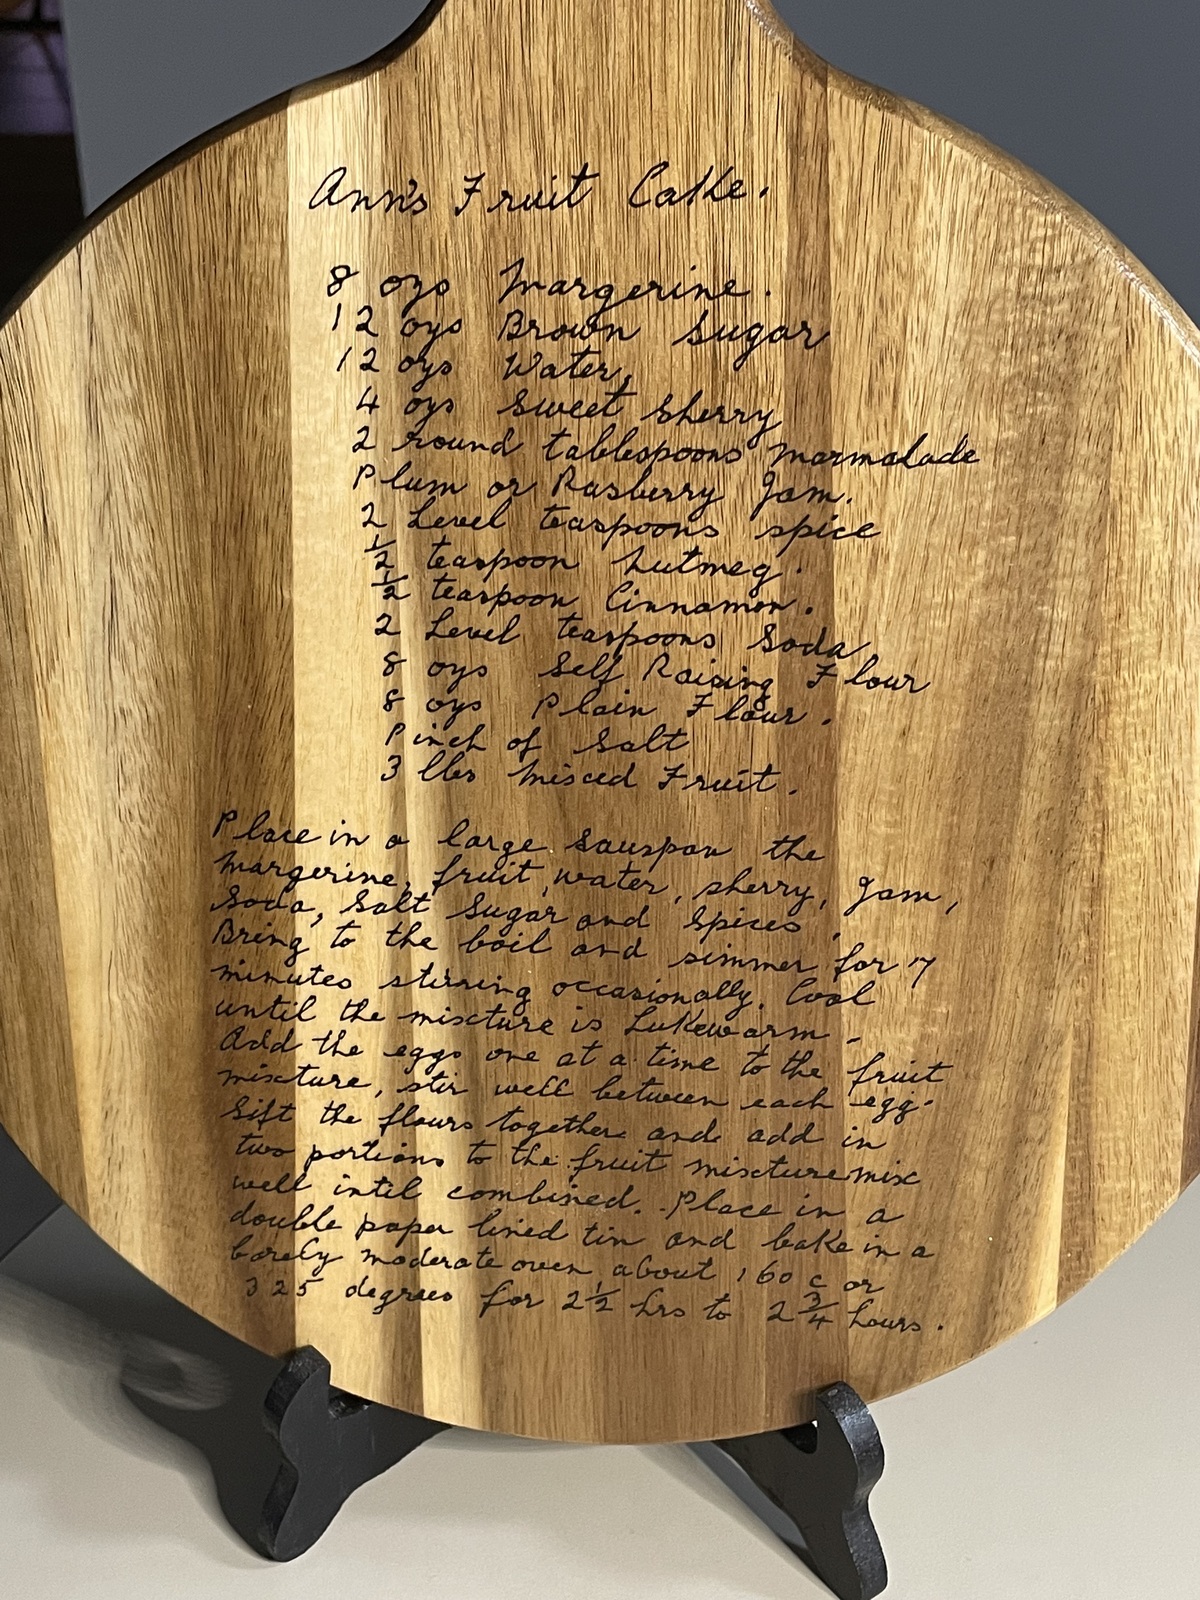 Ann's Fruit Cake.
8 ozs Margerine.
12 ozs Brown Sugar
12 ozs Water.
4 ozs Sweet Sherry
2 round tablespoons Marmalade
Plum or Rasberry Jam.
2 Level teaspoons spice
½ teaspoon Nutmeg.
½ teaspoon Cinnamon.
2 Level teaspoons Soda
8 ozs Self Raising Flour
8 ozs Plain Flour.
Pinch of Salt
3 lbs Mixed Fruit.
Place in a large sauspan the
Margerine, fruit, water, sherry, Jam,
Soda, Salt Sugar and Spices.
Bring to the boil and simmer for 7
minutes stirring occasionally. Cool
until the mixture is Lukewarm.
Add the eggs one at a time to the fruit
mixture, stir well between each egg.
Sift the flours together and add in
two portions to the fruit mixture mix
well intil combined. Place in a
double paper lined tin and bake in a
barely moderate oven about 160 c or
325 degrees for 2½ hrs to 2¾ hours.